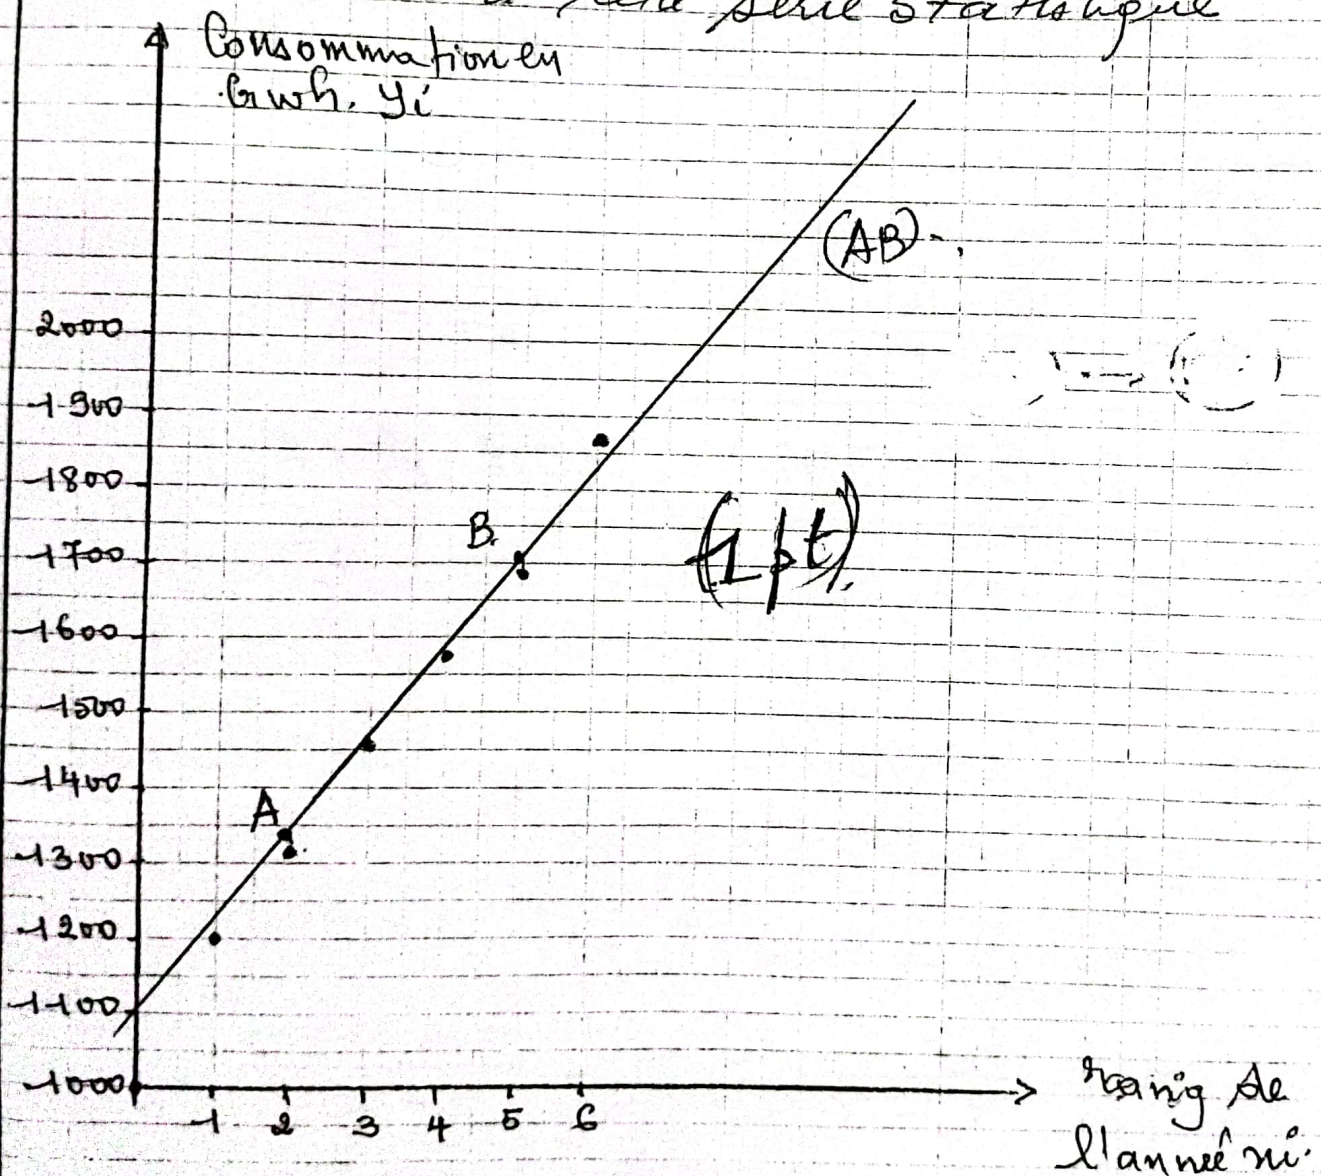 série statistique
Consommation en
Gwh. yi
(AB)
2000
1900
1800
B
(1 pt)
1700
1600
1500
1400
A
1300
1200
1100
1000
rang de
1 2 3 4 5 6
l'année xi